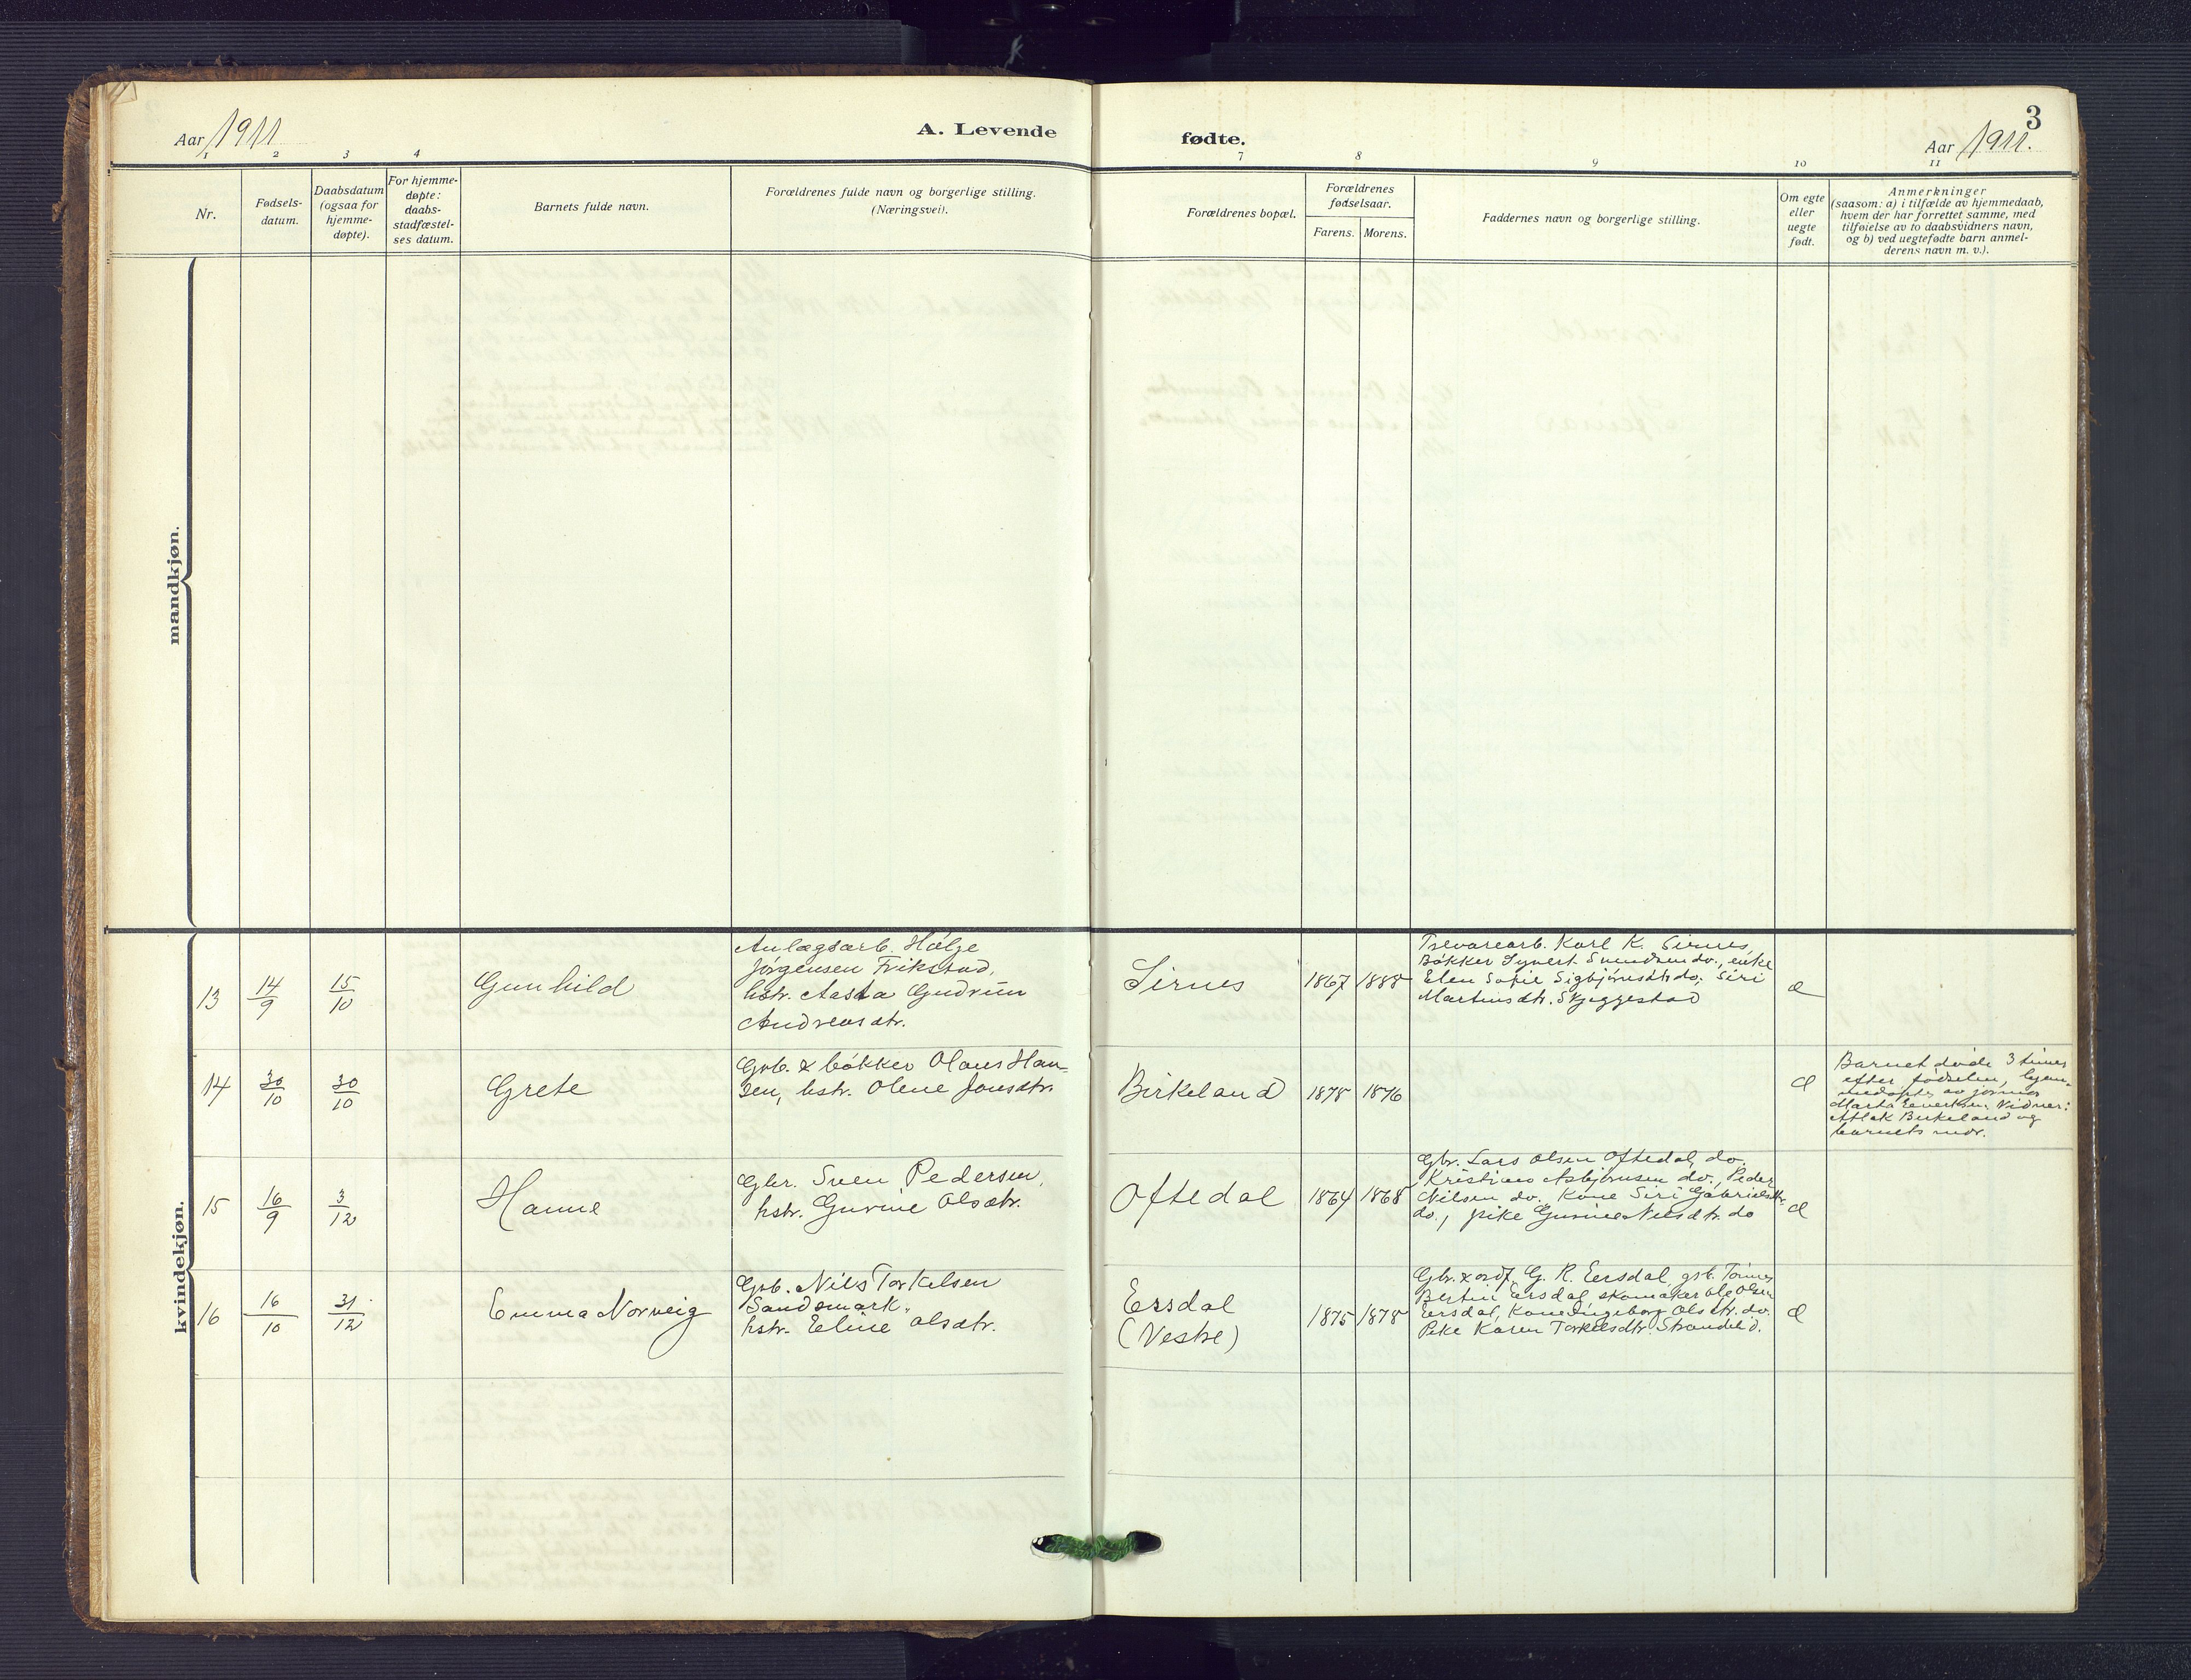 3
Aar 1911
A. Levende
fødte.
Aar 1911.
1 2 3 4 7 8 9 10 11
Nr.
Fødsels-
datum.
Daabsdatum
(ogsaa for
hjemme-
døpte).
For hjemme-
døpte:
daabs-
stadfæstel-
ses datum.
Barnets fulde navn.
Forældrenes fulde navn og borgerlige stilling.
(Næringsvei).
Forældrenes bopæl.
Forældrenes
fødselsaar.
Farens. Morens.
Faddernes navn og borgerlige stilling.
Om egte
eller
uegte
født.
Anmerkninger
(saasom: a) i tilfælde av hjemmedaab,
hvem der har forrettet samme, med
tilføielse av to daabsvidners navn,
og b) ved uegtefødte barn anmel-
derens navn m. v.).
mandkjøn.
kvindekjøn.
13
14/9
15/10
Gunhild
Anlægsarb. Helge
Jørgensen Trikstad,
hstr. Aasta Gudrun
Andreasdtr.
Sirnes
1867
1888
Trevarearb. Karl K. Sirnes,
Bøkker Syvert Svendsen do., enke
Elen Sofie Sigbjørnsdtr do; Siri
Martinsdtr. Skjeggestad
14
30/10
30/10
Grete
Grb. & bøkker Olaus Han-
sen, hstr. Olene Jonsdtr.
Birkeland
1878
1876
Barnet døde 3 timer
efter fødselen, hjem-
medøpt av jormor
Marta Evertsen. Vidner:
Atlak Birkeland og
barnets mor.
15
16/9
3/12
Hanne
Gbr. Sven Pedersen,
hstr. Gurine Olsdtr.
Oftedal
1864
1868
Gbr. Lars Olsen Oftedal, do.
Kristian Asbjørnsen do., Peder
Nilsen do. Kone Siri Gabrielsdtr.
do., pike Gurine Nilsdtr. do
16
16/10
31/12
Emma Norveig
Grb. Nils Torkelsen
Sandsmark,
hstr. Eline Olsdtr.
Ersdal
(Vestre)
1875
1878
Gbr. & ordf. G. R. Eersdal, gsb. Tønnes
Bertin Ersdal, skomaker Ole Olsen
Eersdal, Kone Ingeborg Olsdtr. do.
Pike Karen Torkelsdtr. Strandeli d.